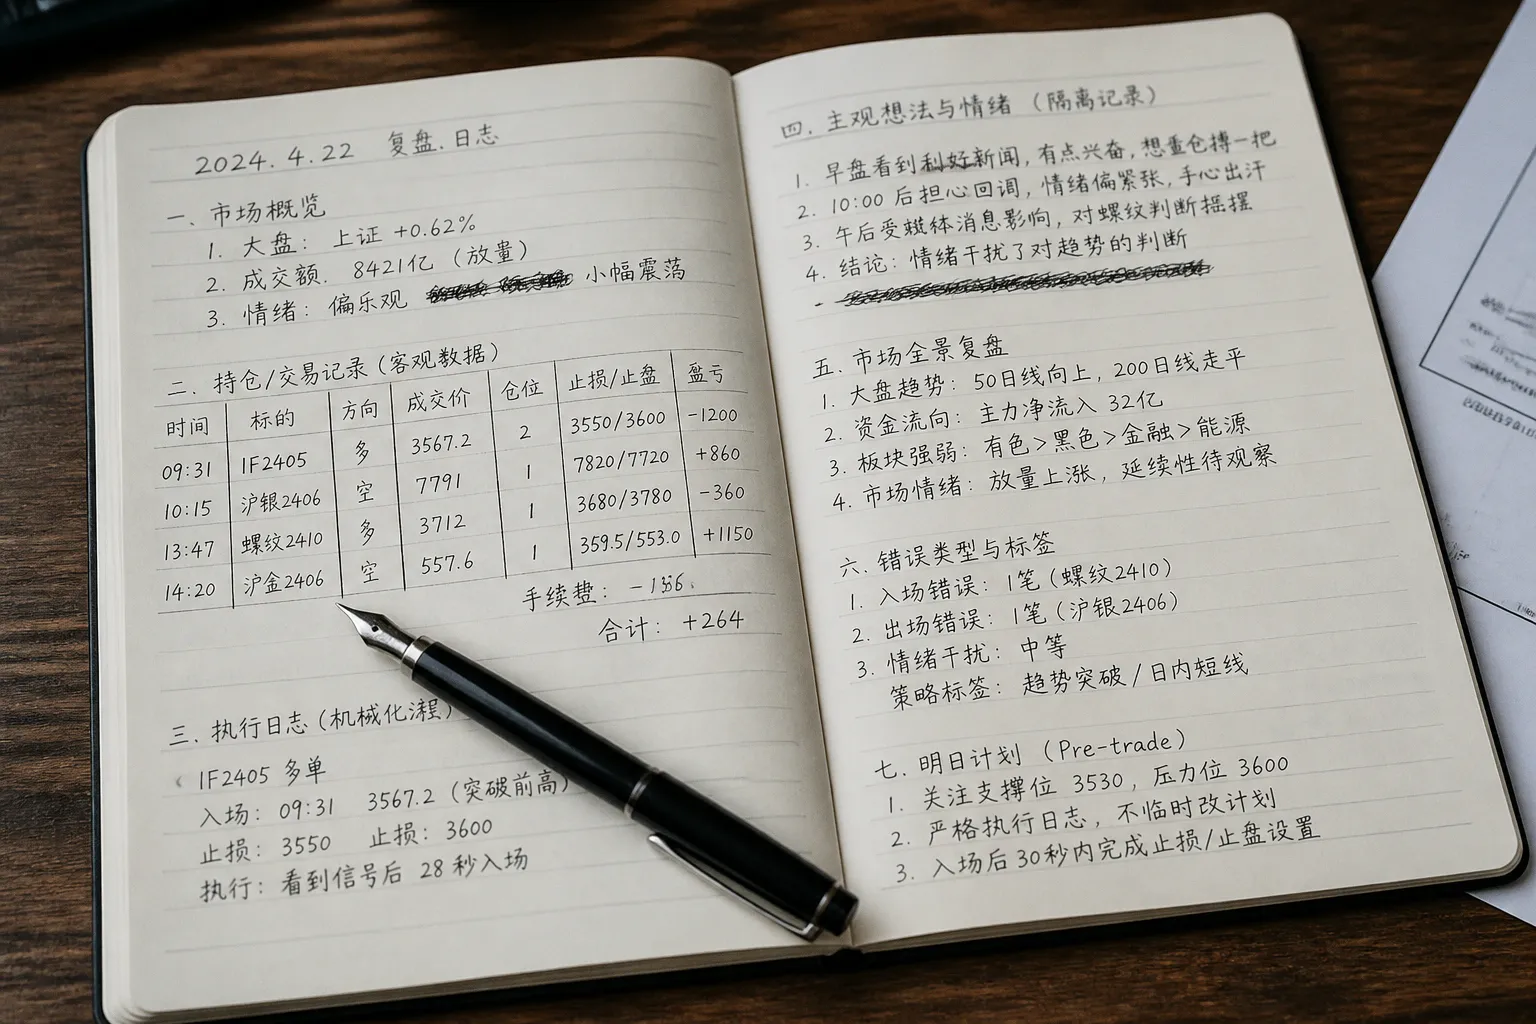 2024.4.22 复盘.日志
一. 市场概览
1. 大盘: 上证 +0.62%
2. 成交额. 8421亿 (放量)
3. 情绪: 偏乐观 小幅震荡
二. 持仓/交易记录(客观数据)
时间 标的 方向 成交价 仓位 止损/止盘 盈亏
09:31 IF2405 多 3567.2 2 3550/3600 -1200
10:15 沪银2406 空 7791 1 7820/7720 +860
13:47 螺纹2410 多 3712 1 3680/3780 -360
14:20 沪金2406 空 557.6 1 359.5/553.0 +1150
手续费: 
合计: +264
三. 执行日志(机械化流程)
IF2405 多单
入场: 09:31 3567.2 (突破前高)
止损: 3550 止损: 3600
执行: 看到信号后 28 秒入场
四. 主观想法与情绪 (隔离记录)
1. 早盘看到利好新闻, 有点兴奋, 想重仓搏一把
2. 10:00 后担心回调, 情绪偏紧张, 手心出汗
3. 午后受媒体消息影响, 对螺纹判断摇摆
4. 结论: 情绪干扰了对趋势的判断
-
五. 市场全景复盘
1. 大盘趋势: 50日线向上, 200日线走平
2. 资金流向: 主力净流入 32亿
3. 板块强弱: 有色>黑色>金融>能源
4. 市场情绪: 放量上涨, 延续性待观察
六. 错误类型与标签
1. 入场错误: 1笔 (螺纹2410)
2. 出场错误: 1笔 (沪银2406)
3. 情绪干扰: 中等
策略标签: 趋势突破/日内短线
七. 明日计划 (Pre-trade)
1. 关注支撑位 3530, 压力位 3600
2. 严格执行日志, 不临时改计划
3. 入场后30秒内完成止损/止盘设置